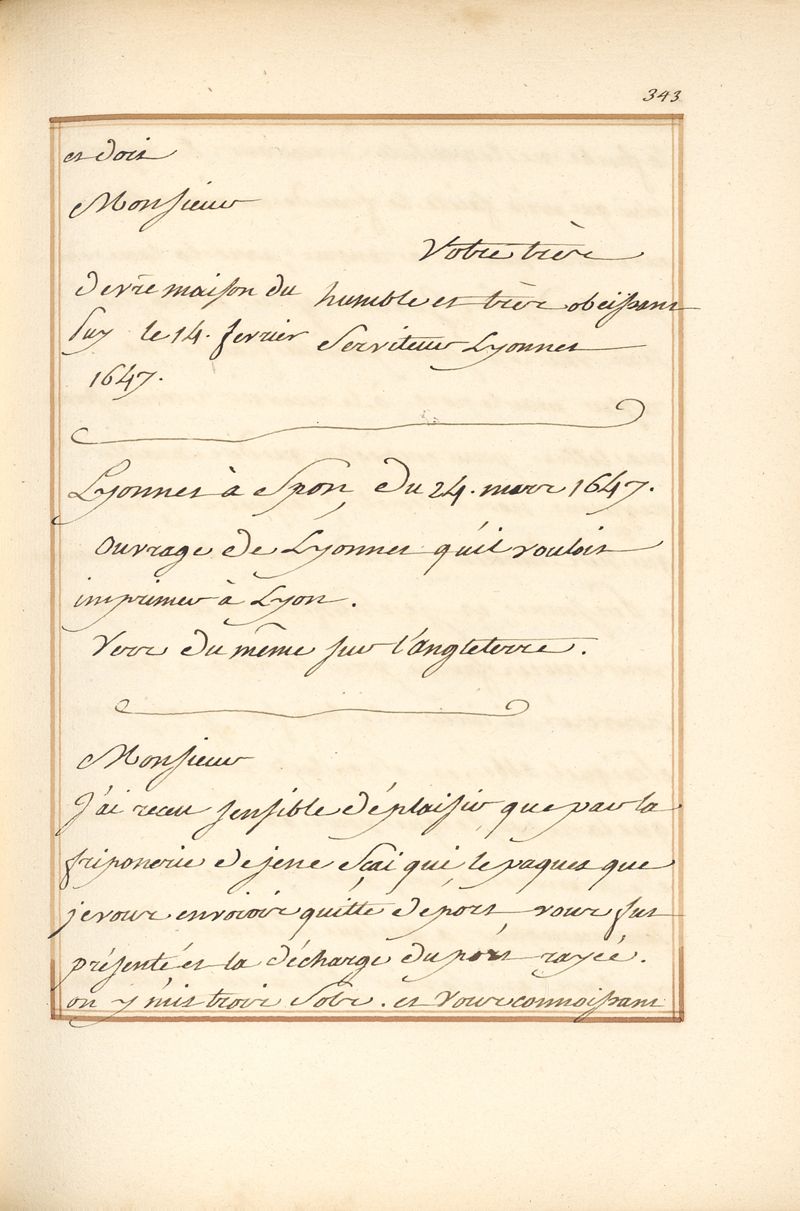 343
et dois
Monsieur
Votre très
De vr̃e maison du humble et très obeissant
Puy le 14. fevrier Serviteur Lyonnet
1647.
Lyonnet à Spon, Du 24. mars 1647.
Ouvrage de Lyonnet qu'il vouloit
imprimer à Lyon.
Vers du même sur l'angleterre.
Monsieur
J'ai receu sensible déplaisir que par la
friponerie de je ne sçai qui, le paquet que
je vous envoiois quitte de port vous fut
présenté et la décharge du port rayée.
on y mit trois sols. et vous connoissant